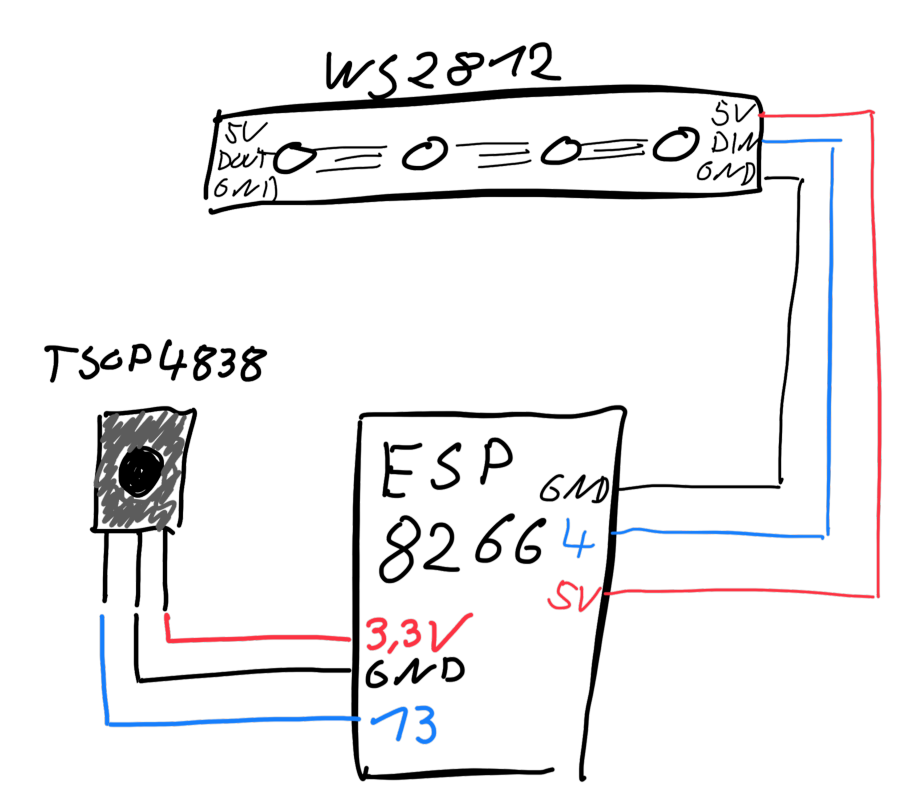 WS2812
5V
DOUT
GND
5V
DIN
GND
TSOP4838
ESP
8266
GND
4
5V
3,3V
GND
13